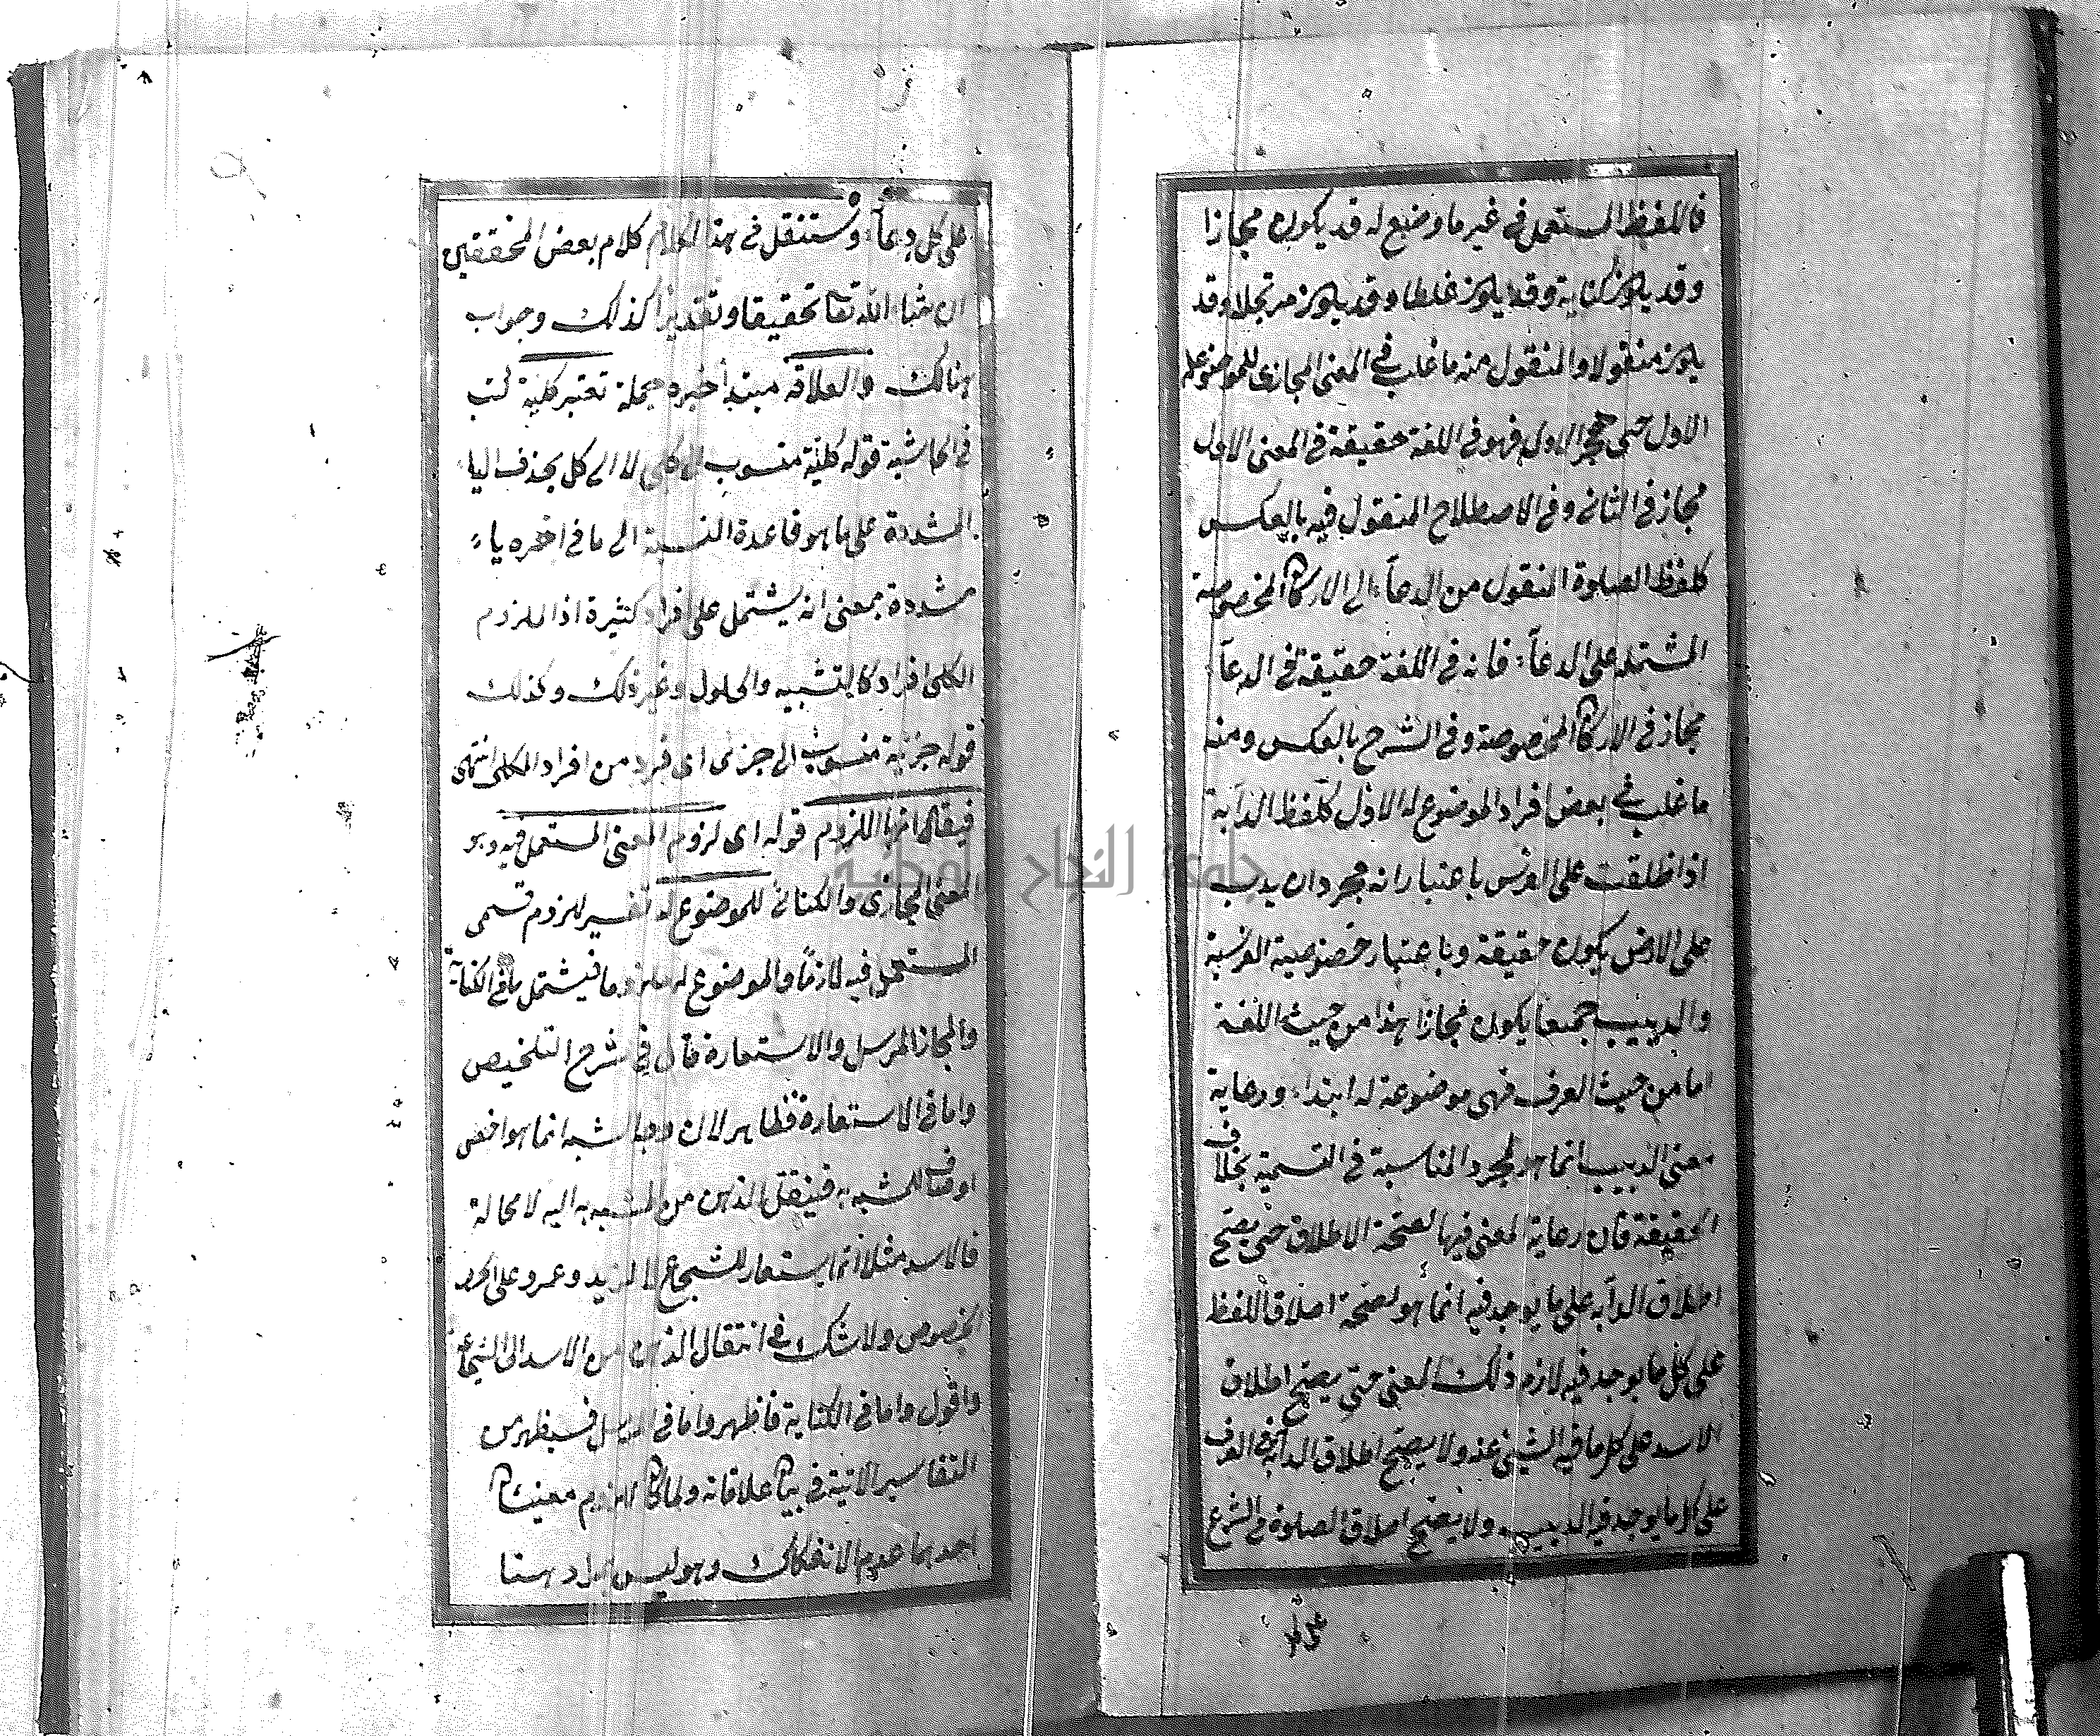 فاللفظ المستعمل في غير ما وضع له قد يكون مجازا
وقد يكون كناية وقد يكون غلطا وقد يكون مرتجلا وقد
يكون منقولا والمنقول منه ما غلب في المعنى المجازى للموضوع له
الاول حتى هجر الاول فهو في اللغة حقيقة في المعنى الاول
مجاز في الثانى وفى الاصطلاح المنقول فيه بالعكس
كلفظ الصلوة المنقول من الدعآء الى الاركا المخصوصة
المشتملة على الدعآء فانه في اللغة حقيقة في الدعآء
مجاز في الاركا المخصوصة وفى الشرع بالعكس ومنه
ما غلب في بعض افراد الموضوع له الاول كلفظ الدآبة
اذا اطلقت على الفرس باعتبار انه مجرد ان يدب
على الارض يكون حقيقة وباعتبار خصوصية الفرسية
والدبيب جميعا يكون مجازا هذا من حيث اللغة
اما من حيث العرف فهى موضوعة له ابتداء ورعاية
معنى الدبيب انما هو لمجرد المناسبة في التسمية بخلاف
الحقيقة فان رعاية المعنى فيها لصحة الاطلاق حتى يصح
اطلاق الدآبه على ما يوجد فيه انما هو لصحة اطلاق اللفظ
على كل ما يوجد فيه لازم ذلك المعنى حتى يصح اطلاق
الاسد على كل ما فيه الشجاعة ولا يصح اطلاق الدآبة في العرف
على كل ما يوجد فيه الدبيب ولا يصح اطلاق الصلوة في الشرع
على كل
على كل دعآء وستنقل في هذا الكلام كلام بعض المحققين
ان شاء الله تعا تحقيقا وتقديرا كذلك وجواب
هنالك والعلاقة مبتدأ خبره جملة تعتبر كلية كتب
في الحاشية قوله كلية منسوب الى كلى لا الى كل بحذف الياء
المشددة على ما هو قاعدة النسبة الى ما في اخره ياء
مشددة بمعنى انه يشتمل على افراد كثيرة اذ اللزوم
الكلى افراد كالتشبيه والحلول وغير ذلك وكذلك
قوله جزئية منسوب الى جزئى اى فرد من افراد الكلى انتهى
فيقال انها اللزوم قوله اى لزوم المعنى المستعمل فيه وهو
المعنى المجازى والكنائى للموضوع له تفسير للزوم فسمى
المستعمل فيه لازما والموضوع له ملزوما فيشتمل ما في الكناية
والمجاز المرسل والاستعارة قال في شرح التلخيص
واما في الاستعارة فظاهر لان وجه الشبه انما هو اخص
اوصاف المشبه به فينقل الذهن من المشبه به اليه لا محالة
فالاسد مثلا انما يستعار للشجاع لا لزيد وعمرو على
الخصوص ولا شك في انتقال الذهن من الاسد الى الشجاع
واقول واما في الكناية فاظهر واما في المرسل فسيظهر من
التفاسير الاتية في بيا علاقاته ولما كا للزوم معنيا
احدهما عدم الانفكاك وهو ليس بمراد هنا
جامعة النجاح الوطنية